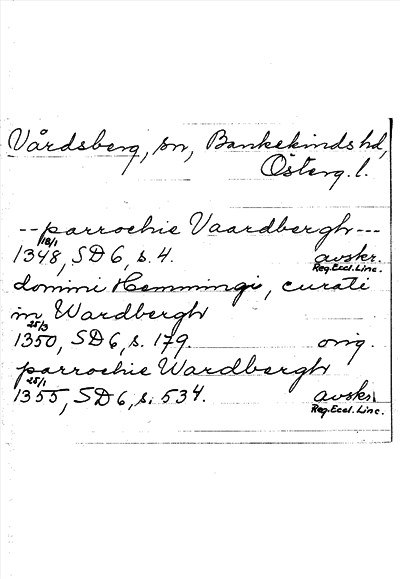 Vårdsberg, sn, Bankekinds hd,
Österg. l.
-- parrochie Vaardbergh ---
18/1
1348, SD 6, s. 4. avskr.
Reg. Eccl. Linc.
domini Hemmingi, curati
in Wardbergh
25/3
1350, SD 6, s. 179. orig.
parrochie Wardbergh
25/1
1355, SD 6, s. 534. avskr.
Reg. Eccl. Linc.